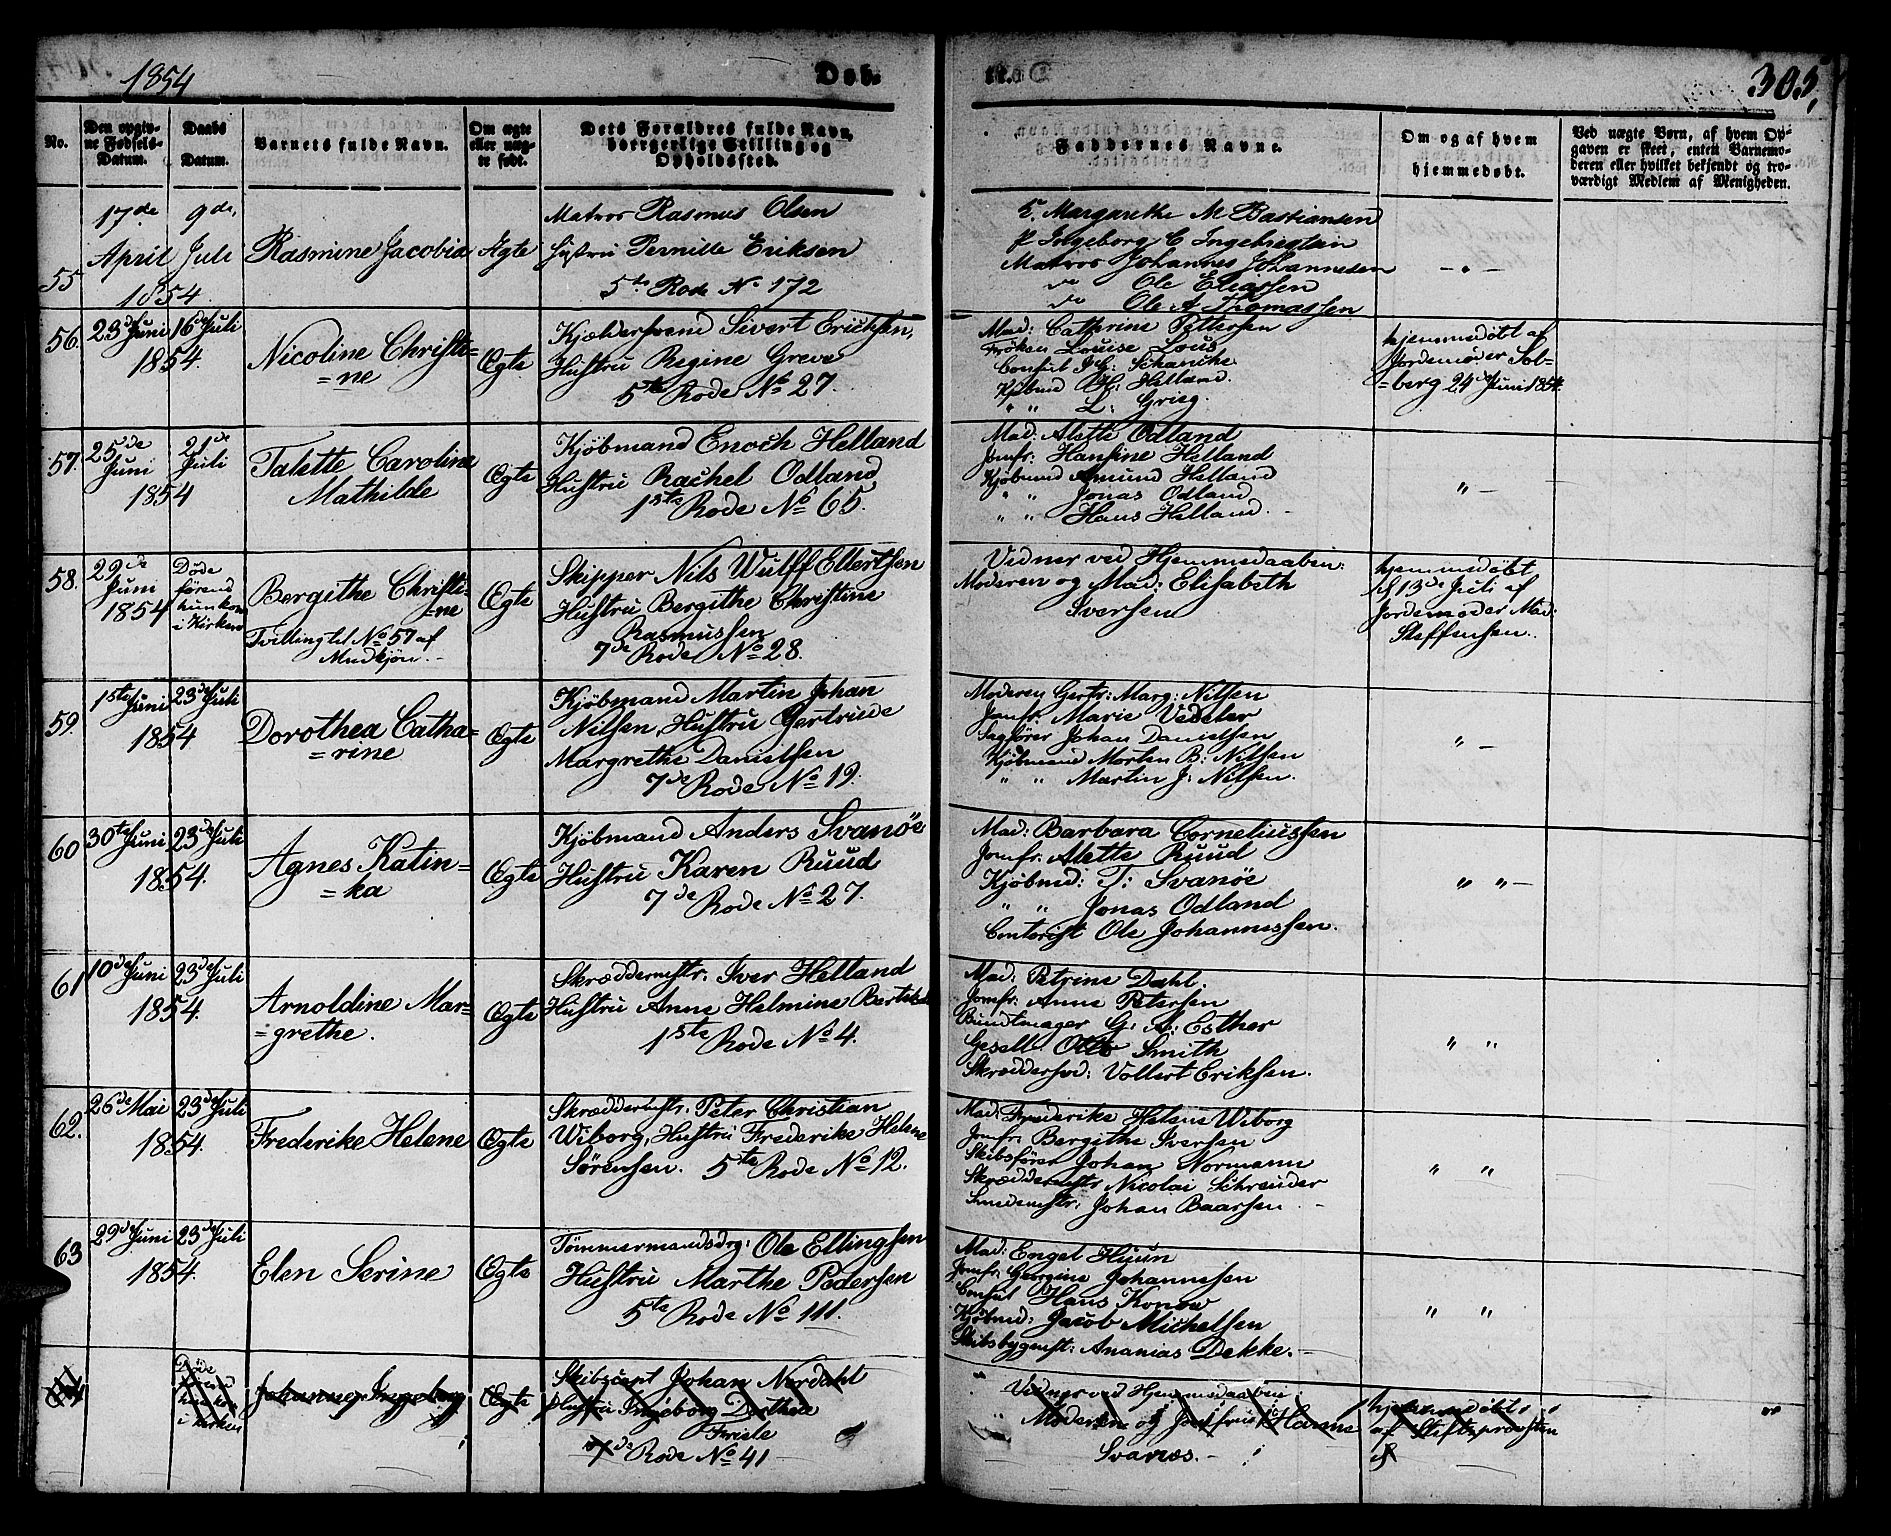 1854
Døb-
te.
305,
No.
Den opgiv-
ne Fødsels-
Datum.
Daabs
Datum.
Barnets fulde Navn.
Om ægte
eller uæg-
te født.
Dets Forældres fulde Navn,
borgerlige Stilling og
Opholdssted.
Faddernes Navne.
Om og af hvem
hjemmedøbt.
Ved uægte Børn, af hvem Op-
gaven er skeet, enten Barnemo-
deren eller hvilket bekjendt og tro-
værdigt Medlem af Menigheden.
55
17de
April
1854.
9de,
Juli
Rasmine Jacobia
Ægte
Matros Rasmus Olsen
Hustru Pernille Eriksen
5te Rode No 172
E. Margarethe M Bastiansen
P Ingeborg C Ingebrigtsen
Matros Johannes Johannesen
do Ole Eliassen
do Ole A Thomassen
56.
23de Juni
1854.
16de Juli
Nicoline Christi-
=ne
Ægte
Kjældersvend Sivert Ericksen,
Hustru Regine Greve
5te Rode No 27.
Mad: Cathrine Pettersen
Frøken Louise Lous
Consul J. G: Schancke
Kjøbmd H: Helland.
" " L: Grieg.
hjemmedøbt af
Jordemoder Sol-
=berg 24de Juni 1854.
57.
25de
Juni
1854
21de
Juli
Talette Caroline
Mathilde
Ægte
Kjøbmand Enoch Helland
Hustru Rachel Odland
1ste Rode No 65.
Mad: Alette Odland
Jomfr: Hansine Helland
Kjøbmnd Amund Helland
" " Jonas Odland
" " Hans Helland. -
" -
58.
29de
Juni
1854
Døde
førend
hun kom
i Kirken
Bergithe Christi-
=ne
Tvilling til No 57 af
Mndkjøn. -
Ægte
Skipper Nils Wulff Ellertsen
Hustru Bergithe Christine
Rasmussen
7de Rode No 28.
Vidner ved Hjemmedaaben:
Moderen og Mad: Elisabeth
Iversen
hjemmedøbt
d 13de Juli af
Jordemoder Mad:
Steffensen.
59.
1ste Juni
1854
23de Juli
Dorothea Catha=
=rine
Ægte
Kjøbmand Martin Johan
Nilsen, Hustru Gertrude
Margrethe Danielsen
7de Rode No 19.
Moderen Gertr: Marg: Nilsen
Jomfr. Marie Vedeler
Sagfører Johan Danielsen
Kjøbmand Morten B: Nilsen
" " Martin J: Nilsen.
" -
60
30te Juni
1854.
23de Juli
Agnes Katin=
=ka
Ægte
Kjøbmand Anders Svanøe
Hustru Karen Ruud
7de Rode No 27.
Mad: Barbara Corneliussen
Jomfr: Alette Ruud
Kjøbmd: T: Svanöe
" " Jonas Odland
Contorist Ole Johannessen.
" " -
61
10de Juni
1854.
23de Juli
Arnoldine Mar=
=grethe.
Ægte
Skrædderemstr: Iver Helland
Hustru Anne Helmine
1ste Rode No 4.
Mad: Petrine Dahl.
Jomfr: Anne Petersen
Bundtmager G: A: Esther
Gesell Smith
Skræddersvd: Vollert Eriksen.
" "
62.
26de Mai
1854.
23de Juli
Frederike Helene
Ægte
Skrædderemstr: Peter Christian
Wiborg, Hustru Frederike Helene
Sørensen. 5te Rode No 12.
Mad: Frederike Helene Wiborg
Jomfr Bergithe Iversen
Skibsfører Johan Normann
Skrædderemstr Nicolai Schreuder
Smedemstr: Johan Baarsen -
" "
63
29de Juni
1854.
23de Juli
Elen Serine
Ægte
Tømmermandsdrg: Ole Ellingsen
Hustru Marthe Pedersen
5te Rode No 111.
Mad: Engel Huun
Jomfr: Georgine Johannessen
Consul Hans Konow
Kjøbmd: Jacob Michelsen
Skibsbygmst: Ananias Dekke. -
" "
Døde
førend
hun kom
i Kirken
Johanne Ingeborg
Ægte
Skibscapt Johan Nordahl
Hustru Ingeborg Dorthea
Friele
7de Rode No 41
Vidner ved Hjemmedaaben
Moderen og Jomfru Hanne
Svanøs. -
hjemmedøbt
af Stiftsprovsten